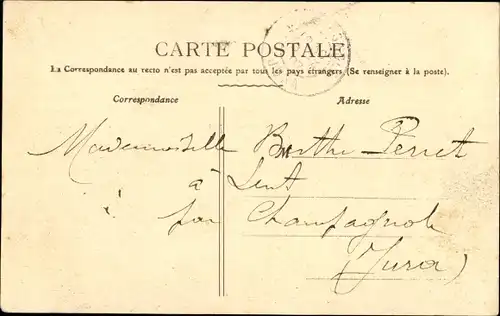 CARTE POSTALE
La Correspondance au recto n'est pas acceptée par tous les pays étrangers. (Se renseigner à la poste).
Correspondance
Adresse
Mademoiselle Berthe Perret
à Lent
par Champagnole
(Jura)